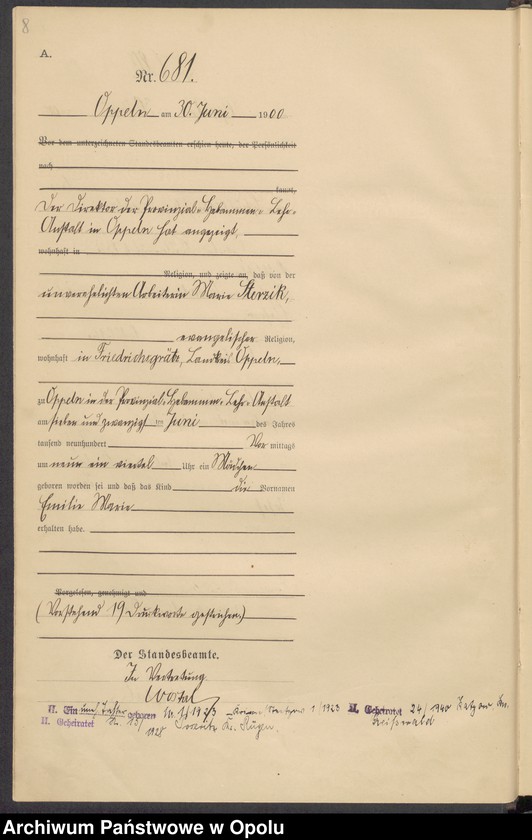 8
A.
Nr. 681.
Oppeln am 30. Juni 1900
Vor dem unterzeichneten Standesbeamten erschien heute, der Persönlichkeit
nach
kannt,
Der Direktor der Provinzial-Hebammen-Lehr-
Anstalt in Oppeln hat angezeigt,
wohnhaft in
Religion, und zeigte an, daß von der
unverehelichten Arbeiterin Marie Sterzik,
evangelischer Religion,
wohnhaft in Friedrichsgrätz, Landkreis Oppeln,
zu Oppeln in der Provinzial-Hebammen-Lehr-Anstalt
am sieben und zwanzigsten Juni des Jahres
tausend neunhundert Vor mittags
um neun ein viertel Uhr ein Mädchen
geboren worden sei und daß das Kind die Vornamen
Emilie Marie
erhalten habe.
Vorgelesen, genehmigt und
(Vorstehend 19 Druckworte gestrichen)
Der Standesbeamte.
In Vertretung
Wostal
II. Ein geboren Nr. 1/1923 1/1923 II. Geheiratet 24/1940
II. Geheiratet Nr. 15/1925 Kr. Rügen. Greifswald
Archiwum Państwowe w Opolu